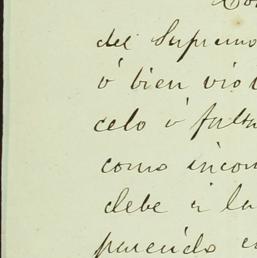 del Supremo
ó bien vio
celo ó falta
como incom
debe á la
parecido e